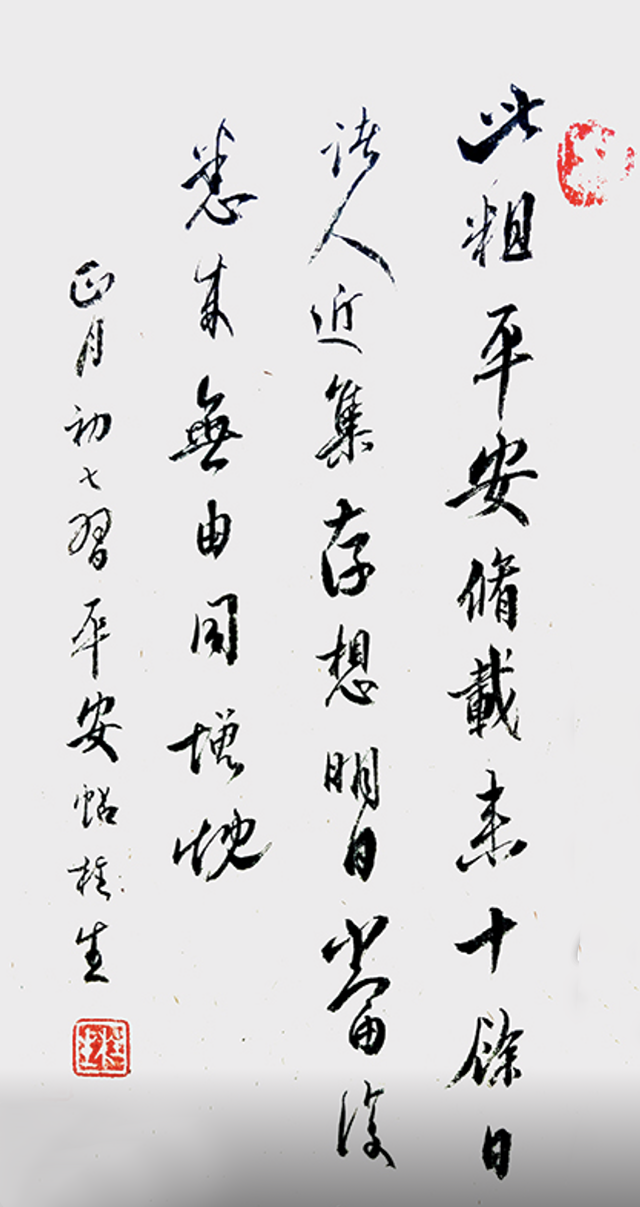 此粗平安脩載来十餘日
諸人近集存想明日當復
悉来無由同增慨
正月初七習平安帖桂生
桂生